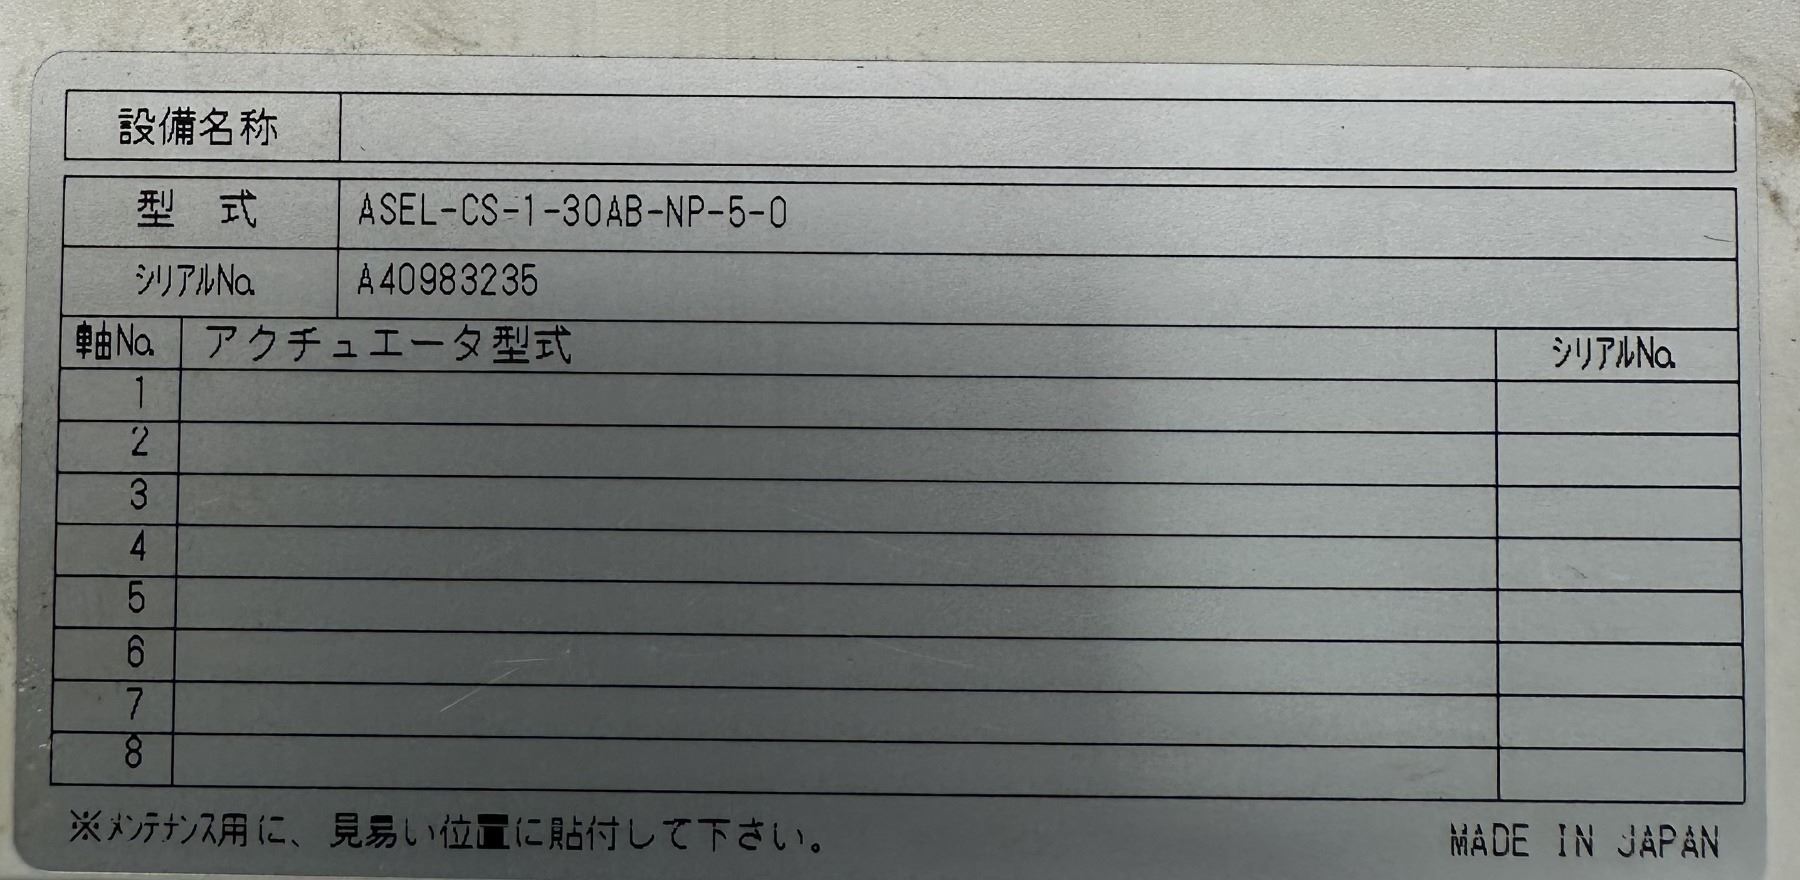 設備名称
型 式 ASEL-CS-1-30AB-NP-5-0
シリアルNo. A40983235
軸No. アクチュエータ型式 シリアルNo.
1
2
3
4
5
6
7
8
※メンテナンス用に、見易い位置に貼付して下さい。
MADE IN JAPAN